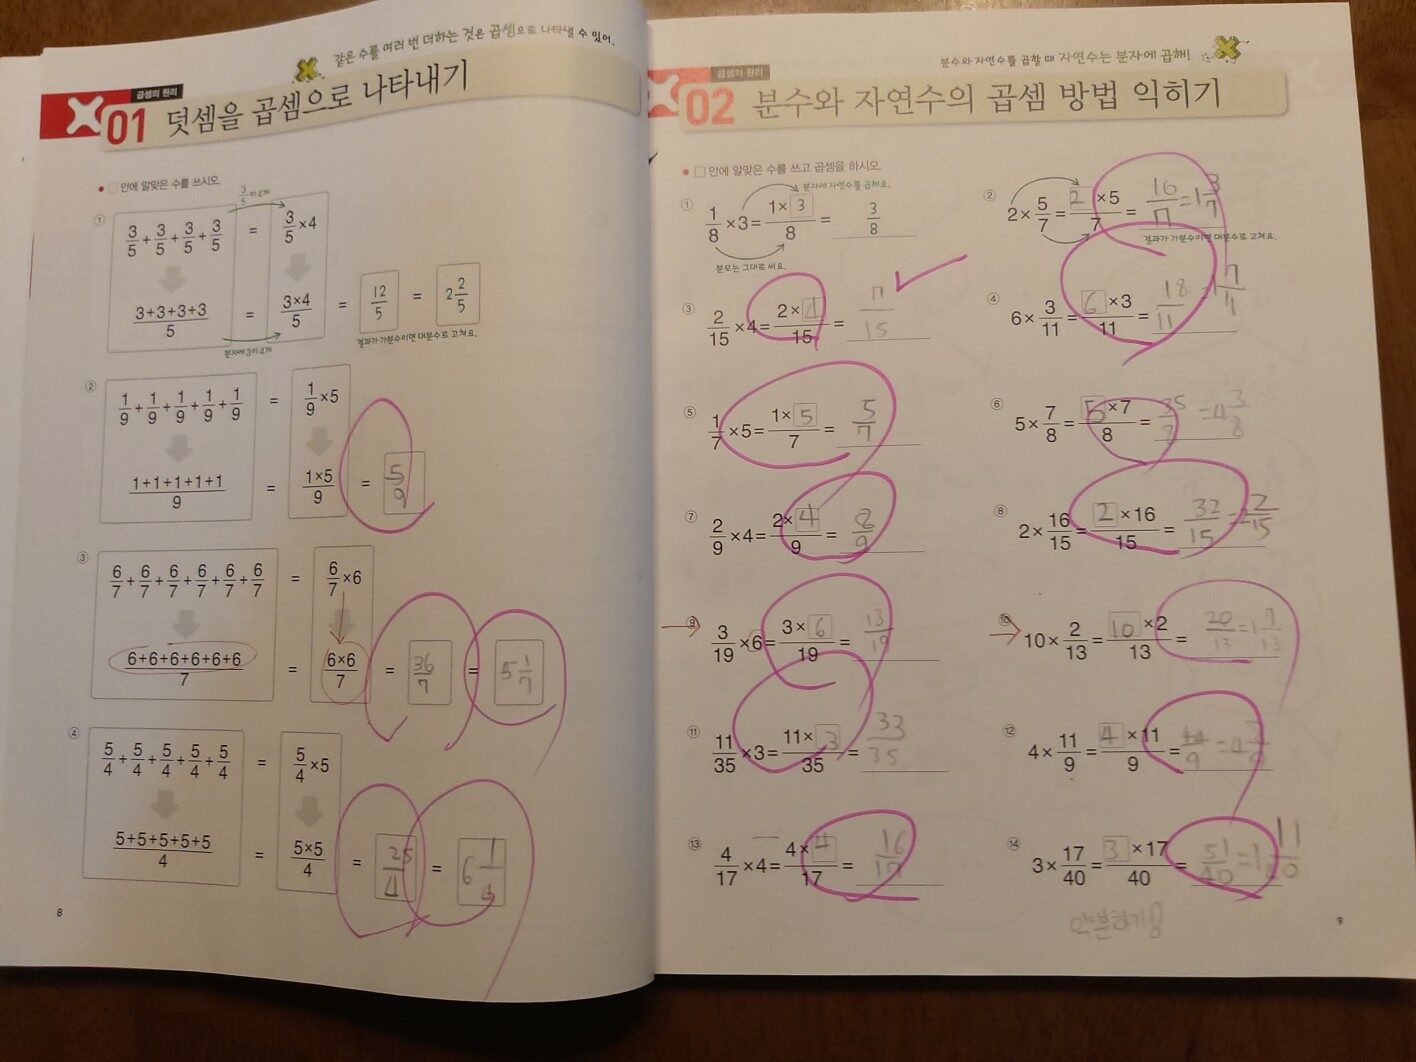 같은 수를 여러 번 더하는 것은 곱셈으로 나타낼 수 있어.
곱셈의 원리
01 덧셈을 곱셈으로 나타내기
□ 안에 알맞은 수를 쓰시오.
3/5이 4개
① 3/5 + 3/5 + 3/5 + 3/5 = 3/5 × 4
(3+3+3+3)/5 = (3×4)/5 = 12/5 = 2 2/5
분자에 3이 4개
결과가 가분수이면 대분수로 고쳐요.
② 1/9 + 1/9 + 1/9 + 1/9 + 1/9 = 1/9 × 5
(1+1+1+1+1)/9 = (1×5)/9 = 5/9
③ 6/7 + 6/7 + 6/7 + 6/7 + 6/7 + 6/7 = 6/7 × 6
(6+6+6+6+6+6)/7 = (6×6)/7 = 36/7 = 5 1/7
④ 5/4 + 5/4 + 5/4 + 5/4 + 5/4 = 5/4 × 5
(5+5+5+5+5)/4 = (5×5)/4 = 25/4 = 6 1/4
8
분수와 자연수를 곱할 때 자연수는 분자에 곱해!
곱셈의 원리
02 분수와 자연수의 곱셈 방법 익히기
□ 안에 알맞은 수를 쓰고 곱셈을 하시오.
분자에 자연수를 곱해요.
① 1/8 × 3 = (1×3)/8 = 3/8
분모는 그대로 써요.
② 2 × 5/7 = (2×5)/7 = 10/7 = 1 3/7
결과가 가분수이면 대분수로 고쳐요.
③ 2/15 × 4 = (2×4)/15 = /15
④ 6 × 3/11 = (6×3)/11 = 18/11 = 1 7/11
⑤ 1/7 × 5 = (1×5)/7 = 5/7
⑥ 5 × 7/8 = (5×7)/8 = 35/8 = 4 3/8
⑦ 2/9 × 4 = (2×4)/9 = 8/9
⑧ 2 × 16/15 = (2×16)/15 = 32/15 = 2/15
⑨ 3/19 × 6 = (3×6)/19 = 18/19
⑩ 10 × 2/13 = (10×2)/13 = 20/13 = 1 7/13
⑪ 11/35 × 3 = (11×3)/35 = 33/35
⑫ 4 × 11/9 = (4×11)/9 = 44/9 = 4 /9
⑬ 4/17 × 4 = (4×4)/17 = 16/17
⑭ 3 × 17/40 = (3×17)/40 = 51/40 = 1 11/40
약분하기
9